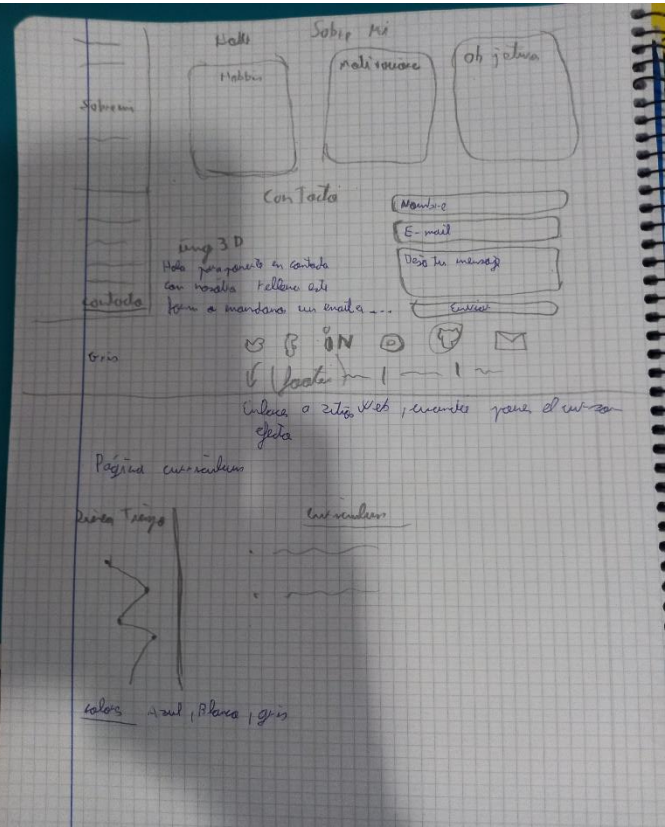 Sobre Mi
Hobbis
Motivacione
Objetivo
Sobre mi
Contacto
Nombre
E-mail
Deja tu mensaje
Enviar
img 3D
Hola ponganse en contacto
con nosotros rellene este
form o mandano un email a ...
contacto
iN
Gris
footer
Enlace a sitios Web, cuando pones el cursor
efecto
Página curriculum
Linea Tiempo
Curriculum
colors Azul, Blanco, gris